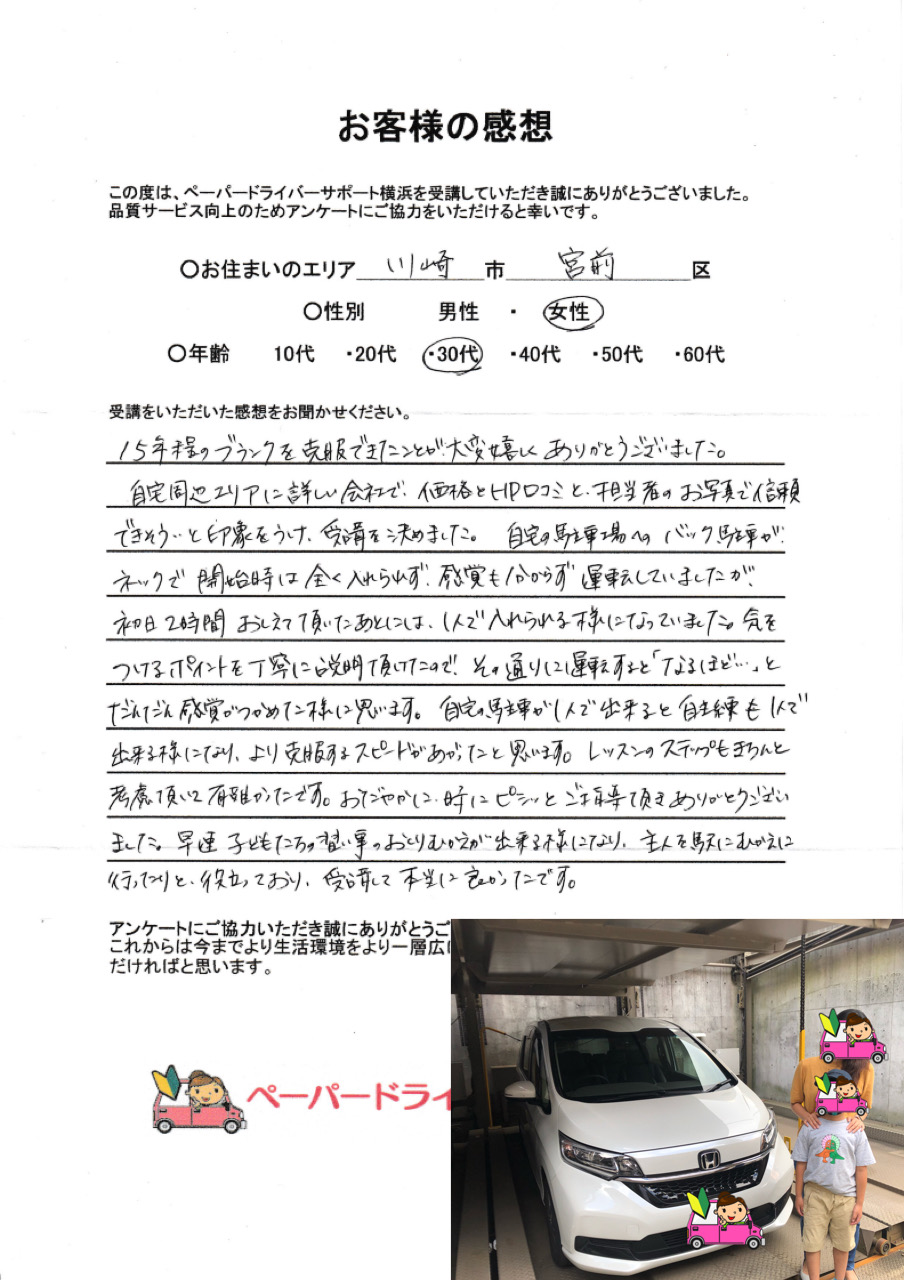 お客様の感想
この度は、ペーパードライバーサポート横浜を受講していただき誠にありがとうございました。
品質サービス向上のためアンケートにご協力をいただけると幸いです。
〇お住まいのエリア 川崎 市 宮前 区
〇性別 男性 ・ 女性
〇年齢 10代 ・20代 ・30代 ・40代 ・50代 ・60代
受講をいただいた感想をお聞かせください。
15年程のブランクを克服できたことが大変嬉しくありがとうございました。
自宅周辺エリアに詳しい会社で、価格とHP口コミと、担当者のお写真で信頼
できそう…と印象をうけ、受講を決めました。 自宅の駐車場へのバック駐車が
ネックで開始時は全く入れられず、感覚も分からず運転していましたが、
初日2時間おしえて頂いたあとには、1人で入れられる様になっていました。気を
つけるポイントを丁寧に説明頂けたので、その通りに運転すると「なるほど…」と
だんだん感覚がつかめた様に思います。自宅の駐車が1人で出来ると自主練も1人で
出来る様になり、より克服するスピードがあがったと思います。レッスンのステップもきちんと
考慮頂いて有難かったです。おだやかに、時にピシッとご指導頂きありがとうござい
ました。早速子どもたちの習い事のおくりむかえが出来る様になり、主人を駅にむかえに
行ったりと、役立っており、受講して本当に良かったです。
アンケートにご協力いただき誠にありがとうご
これからは今までより生活環境をより一層広
だければと思います。
ペーパードライ